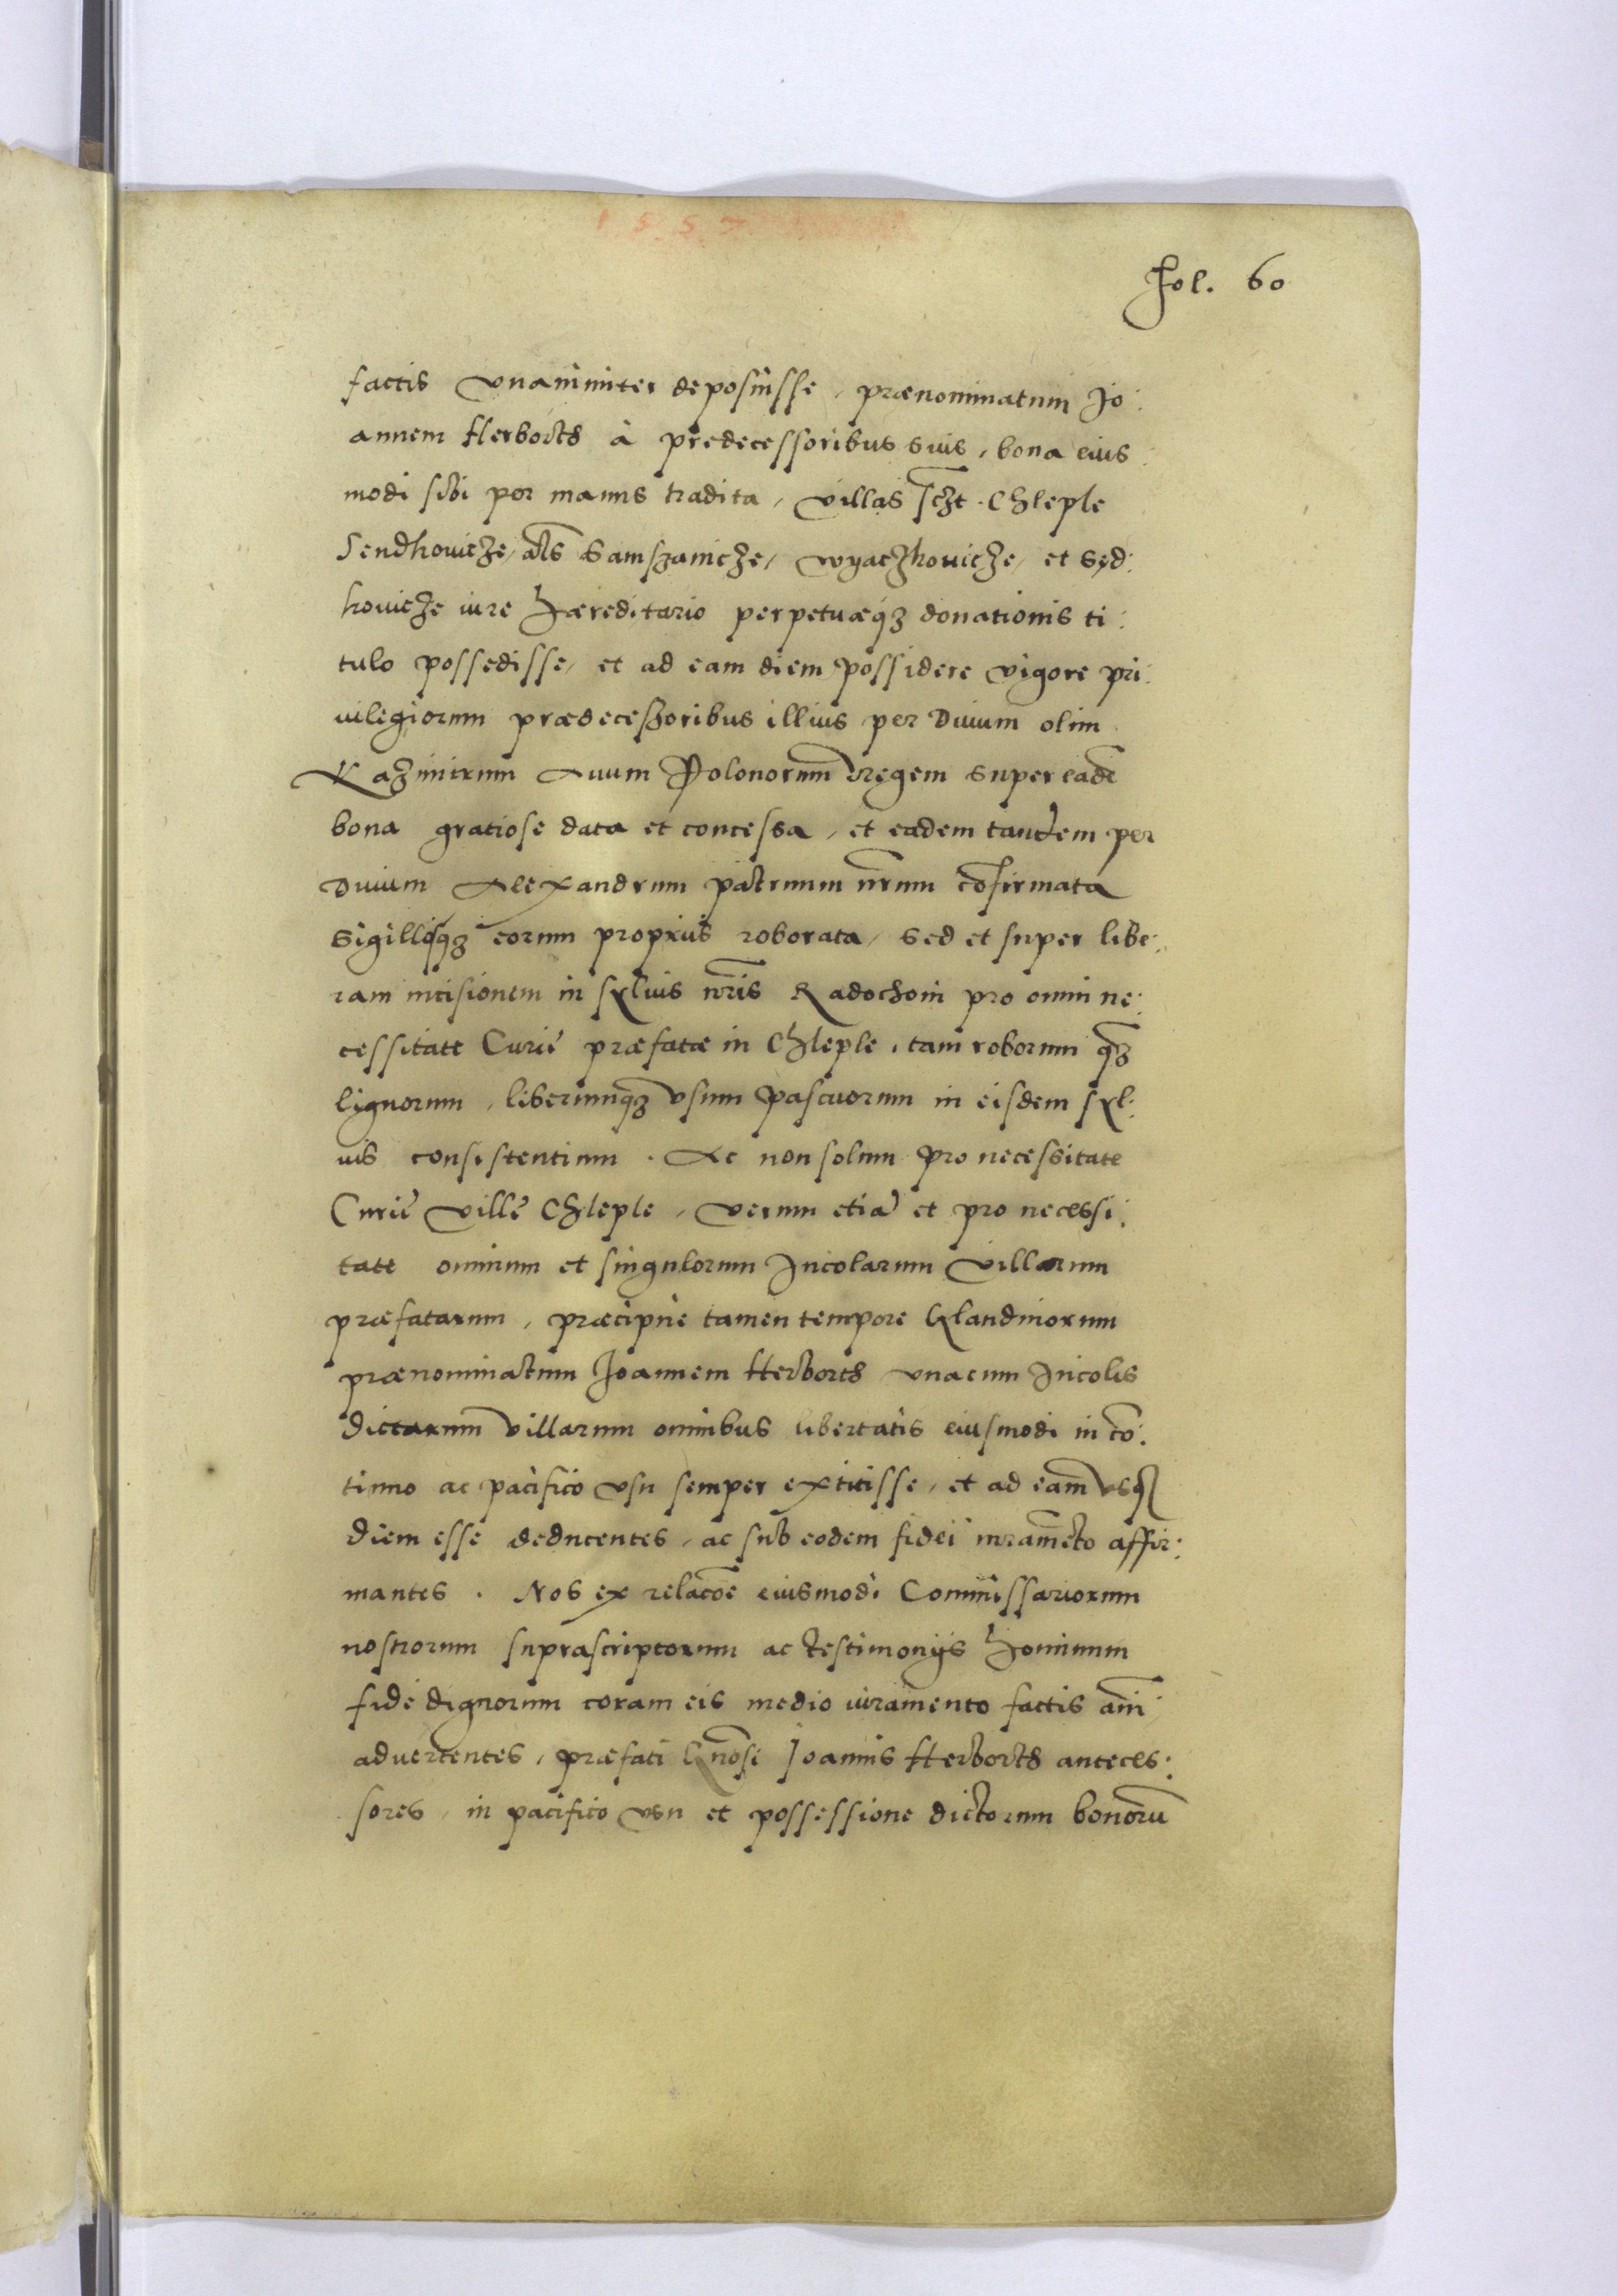 1557
Fol. 60
factis vnanimiter deposuisse, prænominatum Jo:
annem Herborth à predecessoribus suis, bona eius:
modi sibi per manus tradita, villas sczt. Chleple
Sendkovicze, als Samszanicze, Wyaczkovicze, et Sęd:
kovicze iure hæreditario perpetuæqz donationis ti:
tulo possedisse, et ad eam diem possidere vigore pri:
uilegiorum prædecessoribus illius per Diuum olim
Kazimirum Auum Polonorum Regem super eadē
bona gratiose data et concessa, et eadem tandem per
Diuum Alexandrum patruum nrum cōfirmata
sigillisqz eorum proprijs roborata, sed et super libe:
ram incisionem in syluis nris Radochoin pro omni ne:
cessitate Curie præfatæ in Chleple, tam roborum qz
lignorum, liberumqz vsum pascuorum in eisdem syl:
uis consistentium. Ac non solum pro necessitate
Curie ville Chleple, verum etiā et pro necessi:
tate omnium et singulorum Incolarum villarum
præfatarum, præcipue tamen tempore Glandinorum
prænominatum Joannem Herborth vnacum Incolis
dictarum villarum omnibus libertatis eiusmodi in cō:
tinuo ac pacifico vsu semper extitisse, et ad eam vsqz
diem esse deducentes, ac sub eodem fidei iuramēto affir:
mantes. Nos ex relacōe eiusmodi Commissariorum
nostrorum suprascriptorum ac testimonijs hominum
fide dignorum coram eis medio iuramento factis ani
aduertentes, præfati Gnosi Joannis Herborth anteces:
sores, in pacifico vsu et possessione dictorum bonorū